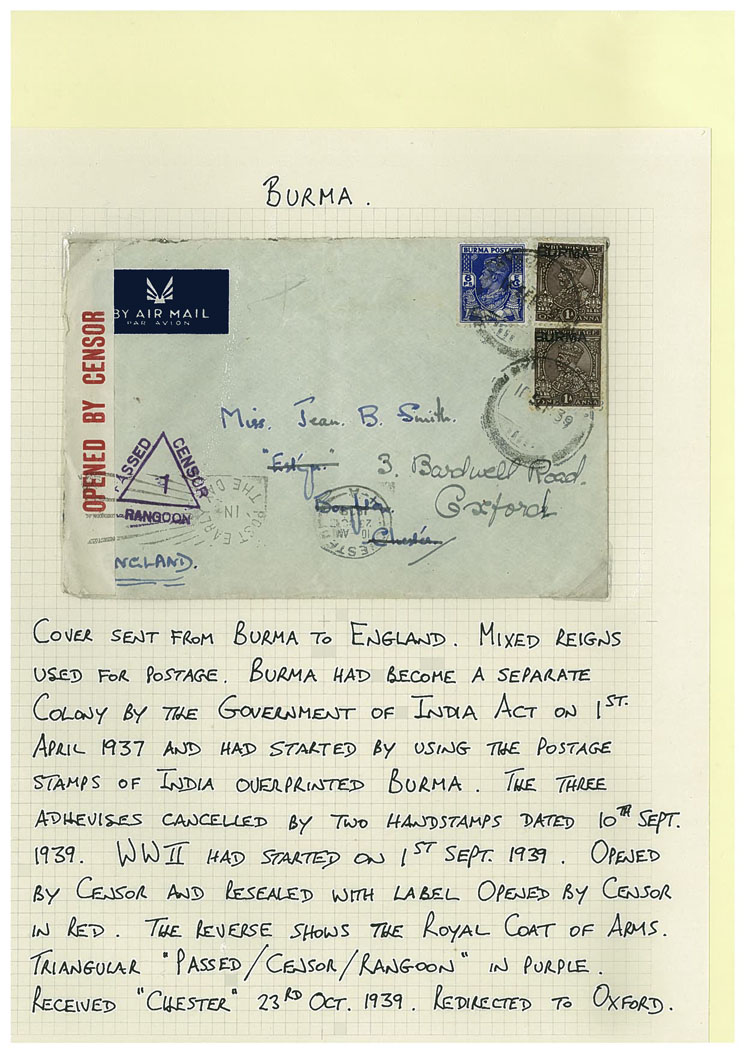 BURMA.
BURMA POSTAGE
INDIA POSTAGE
BURMA
1A
ANNA
BURMA
1A
ONE ANNA
BY AIR MAIL
PAR AVION
OPENED BY CENSOR
PASSED CENSOR
1
RANGOON
POST EARLY
IN
THE DAY
SEP 39
Miss. Jean. B. Smith.
3. Bardwell Road.
Oxford
Chester
CHESTER
10 AM
ENGLAND.
COVER SENT FROM BURMA TO ENGLAND. MIXED REIGNS
USED FOR POSTAGE. BURMA HAD BECOME A SEPARATE
COLONY BY THE GOVERNMENT OF INDIA ACT ON 1ST.
APRIL 1937 AND HAD STARTED BY USING THE POSTAGE
STAMPS OF INDIA OVERPRINTED BURMA. THE THREE
ADHEVISES CANCELLED BY TWO HANDSTAMPS DATED 10TH SEPT.
1939. WWII HAD STARTED ON 1ST SEPT. 1939. OPENED
BY CENSOR AND RESEALED WITH LABEL OPENED BY CENSOR
IN RED. THE REVERSE SHOWS THE ROYAL COAT OF ARMS.
TRIANGULAR "PASSED/CENSOR/RANGOON" IN PURPLE.
RECEIVED "CHESTER" 23RD OCT. 1939. REDIRECTED TO OXFORD.